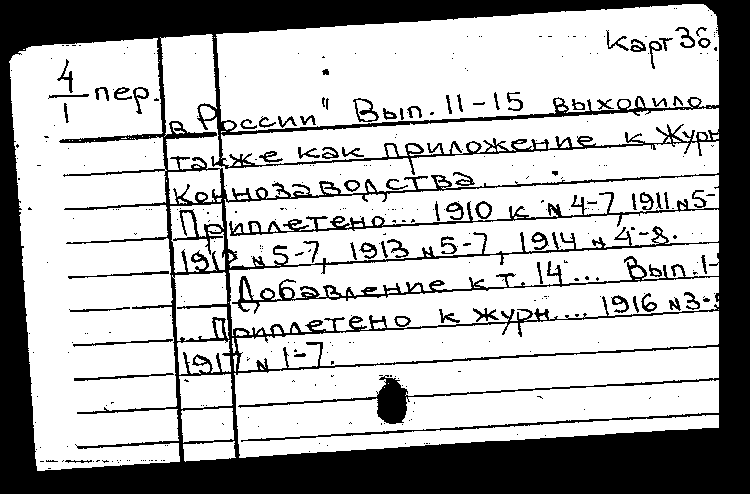 Карт 36.
4/1 пер.
в России" Вып. 11-15 выходило
также как приложение к „Журн
Коннозаводства.
Приплетено... 1910 к № 4-7, 1911 № 5-
1912 № 5-7, 1913 № 5-7, 1914 № 4-8.
Добавление к т. 14... Вып. 1-
... Приплетено к журн... 1916 № 3-
1917 № 1-7.